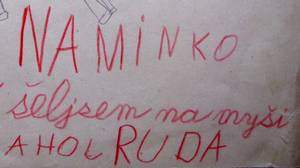 NAMINKO
šeljsem na myši
AHOL RUDA